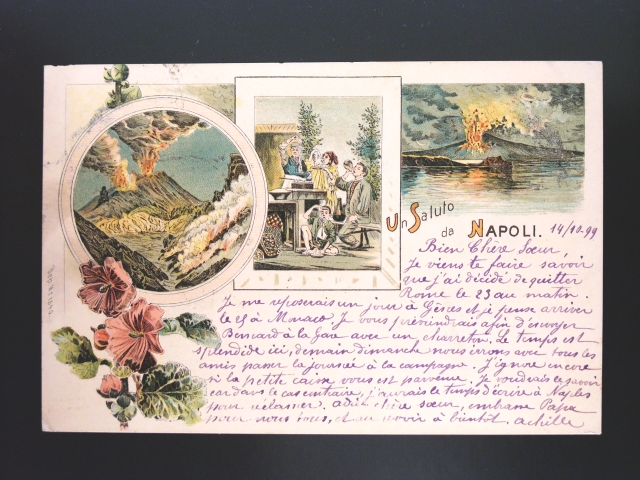 Un Saluto
da NAPOLI. 14/10.99
Bien Chère Sœur,
Je viens te faire savoir
que j'ai décidé de quitter
Rome le 23 au matin.
Je me reposerais un jour à Gênes et je pense arriver
le 25 à Monaco. Je vous préviendrais afin d'envoyer
Bernard à la Gare avec un charreton. Le temps est
splendide ici, demain dimanche nous irons avec tous les
amis passer la journée à la campagne. J'ignore encore
si la petite caisse vous est parvenue. Je voudrais le savoir
car dans le cas contraire, j'aurais le temps d'écrire à Naples
pour réclamer. Adieu chère sœur, embrasse Papa
pour nous tous, et au revoir à bientôt. Achille